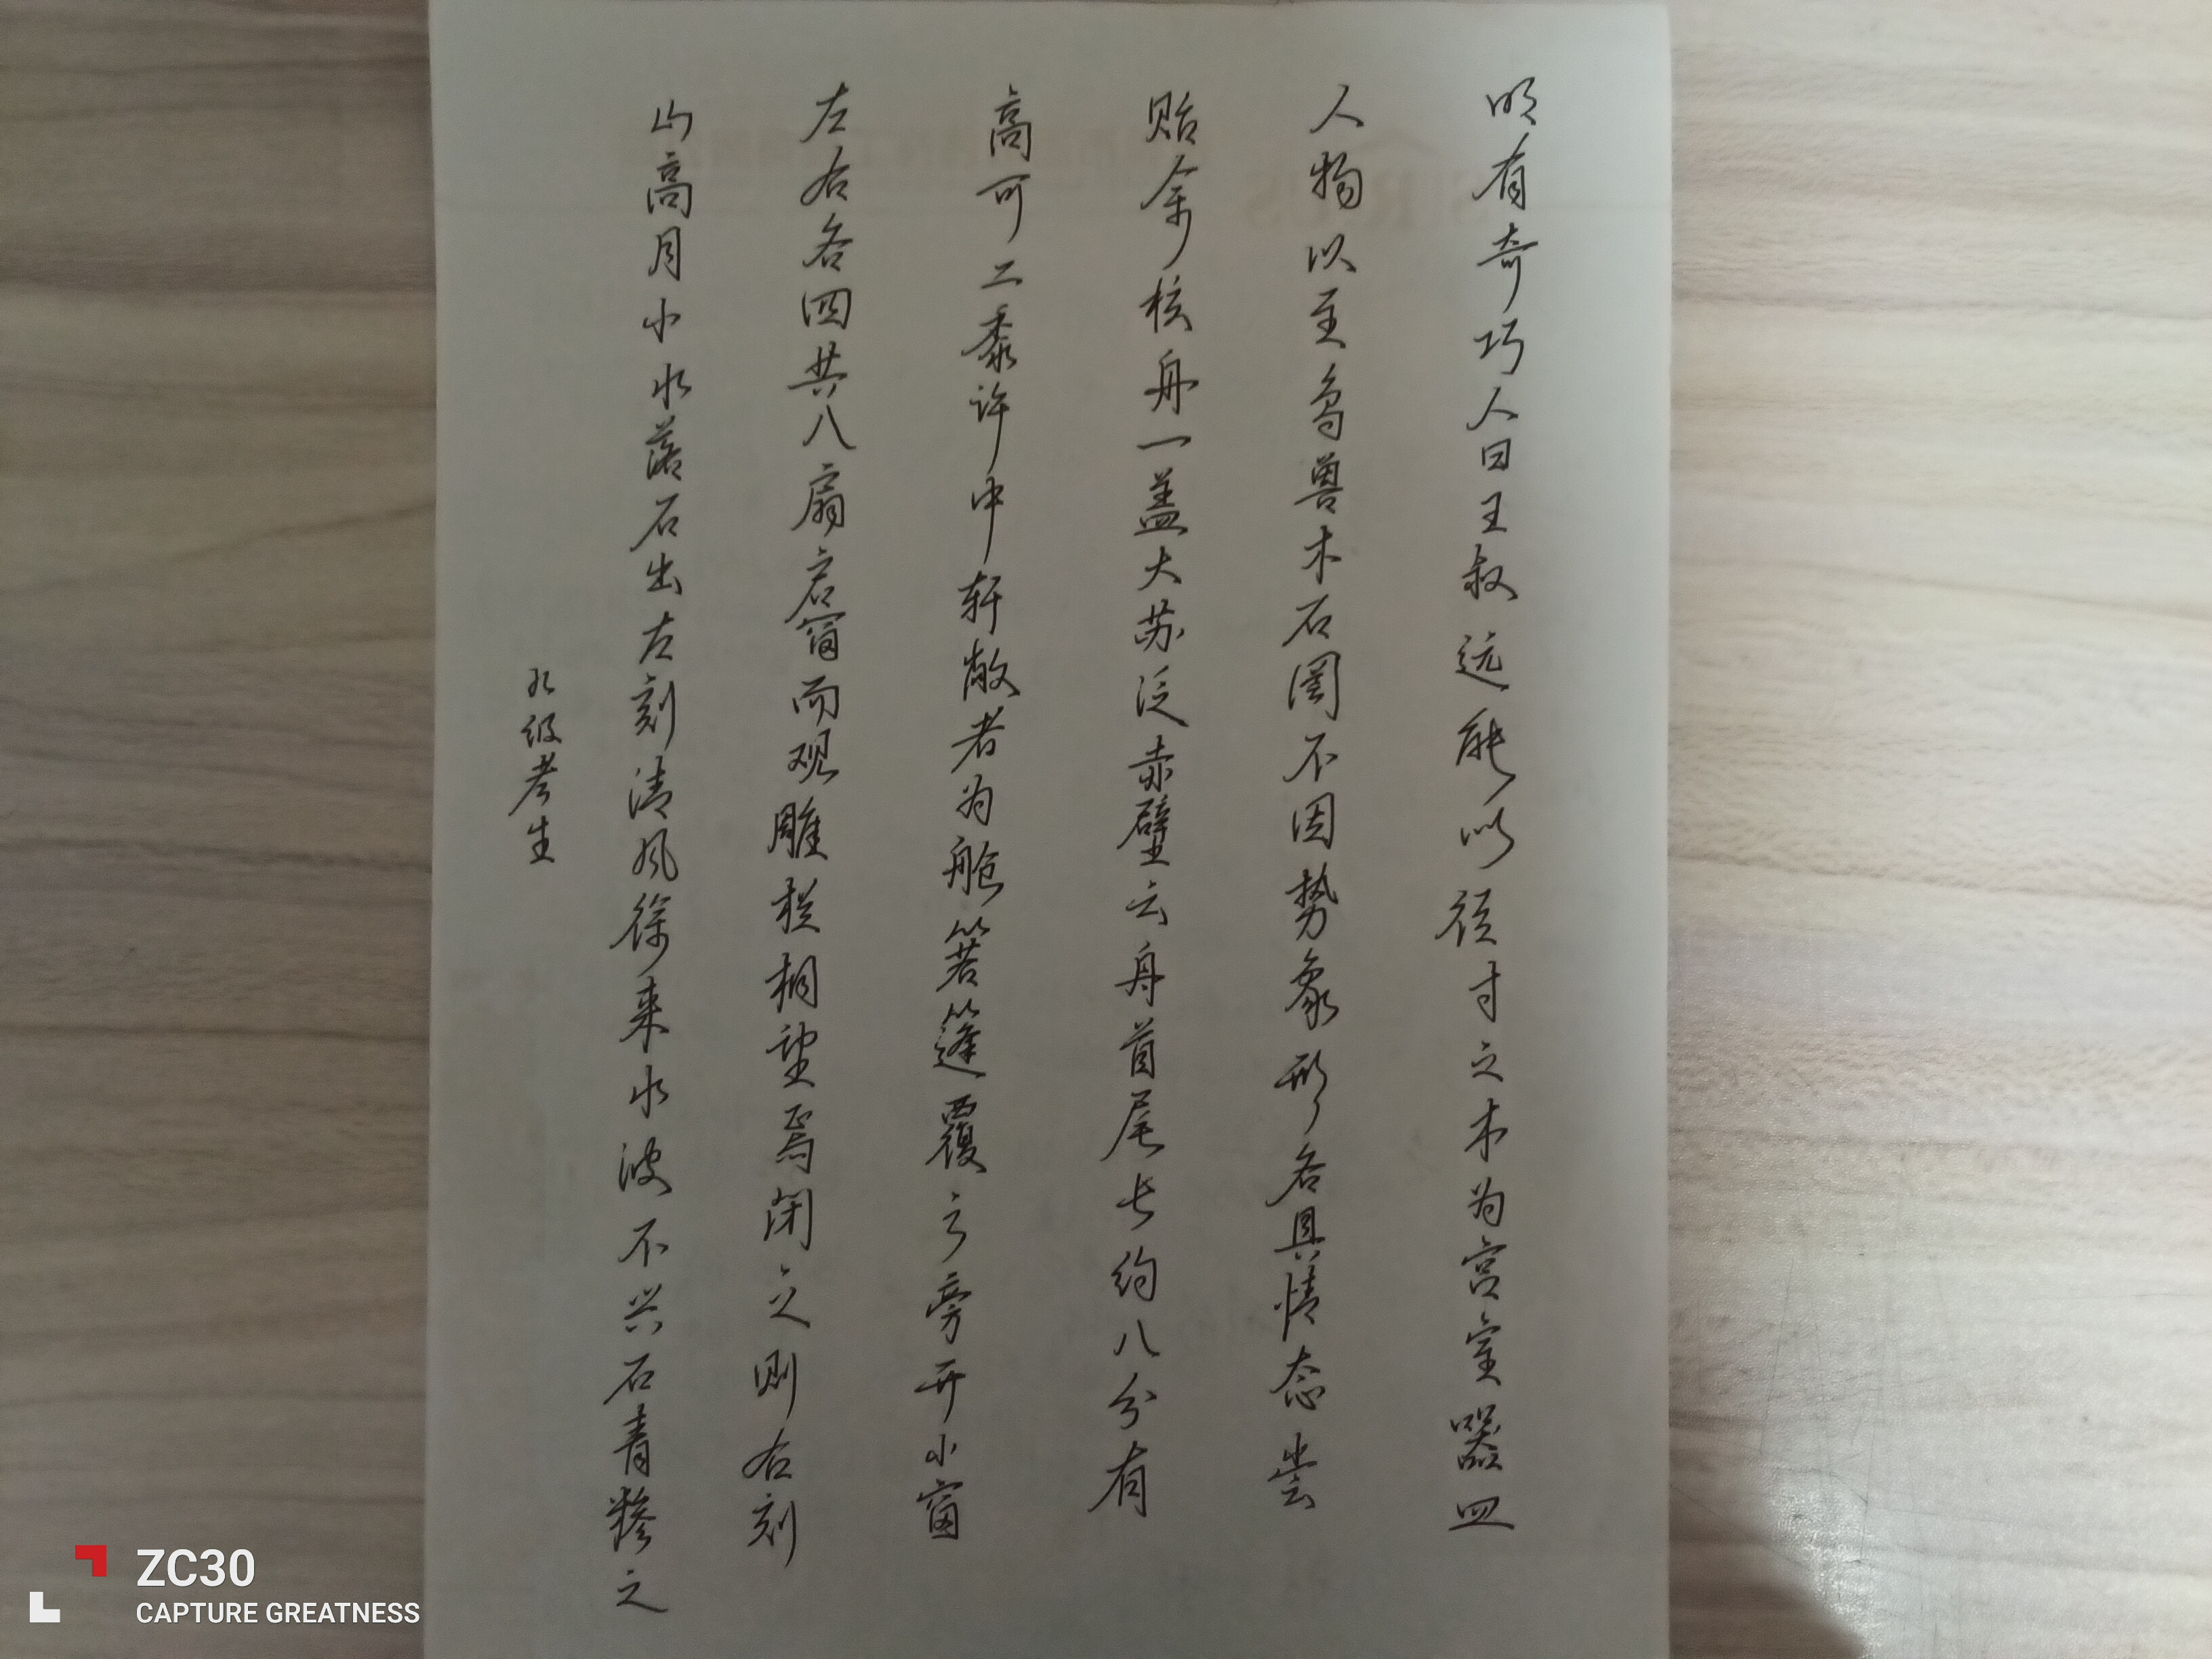 明有奇巧人曰王叔远能以径寸之木为宫室器皿
人物以至鸟兽木石罔不因势象形各具情态尝
贻余核舟一盖大苏泛赤壁云舟首尾长约八分有
高可二黍许中轩敞者为舱箬篷覆之旁开小窗
左右各四共八扇启窗而观雕栏相望焉闭之则右刻
山高月小水落石出左刻清风徐来水波不兴石青糁之
九级考生
ZC30
CAPTURE GREATNESS